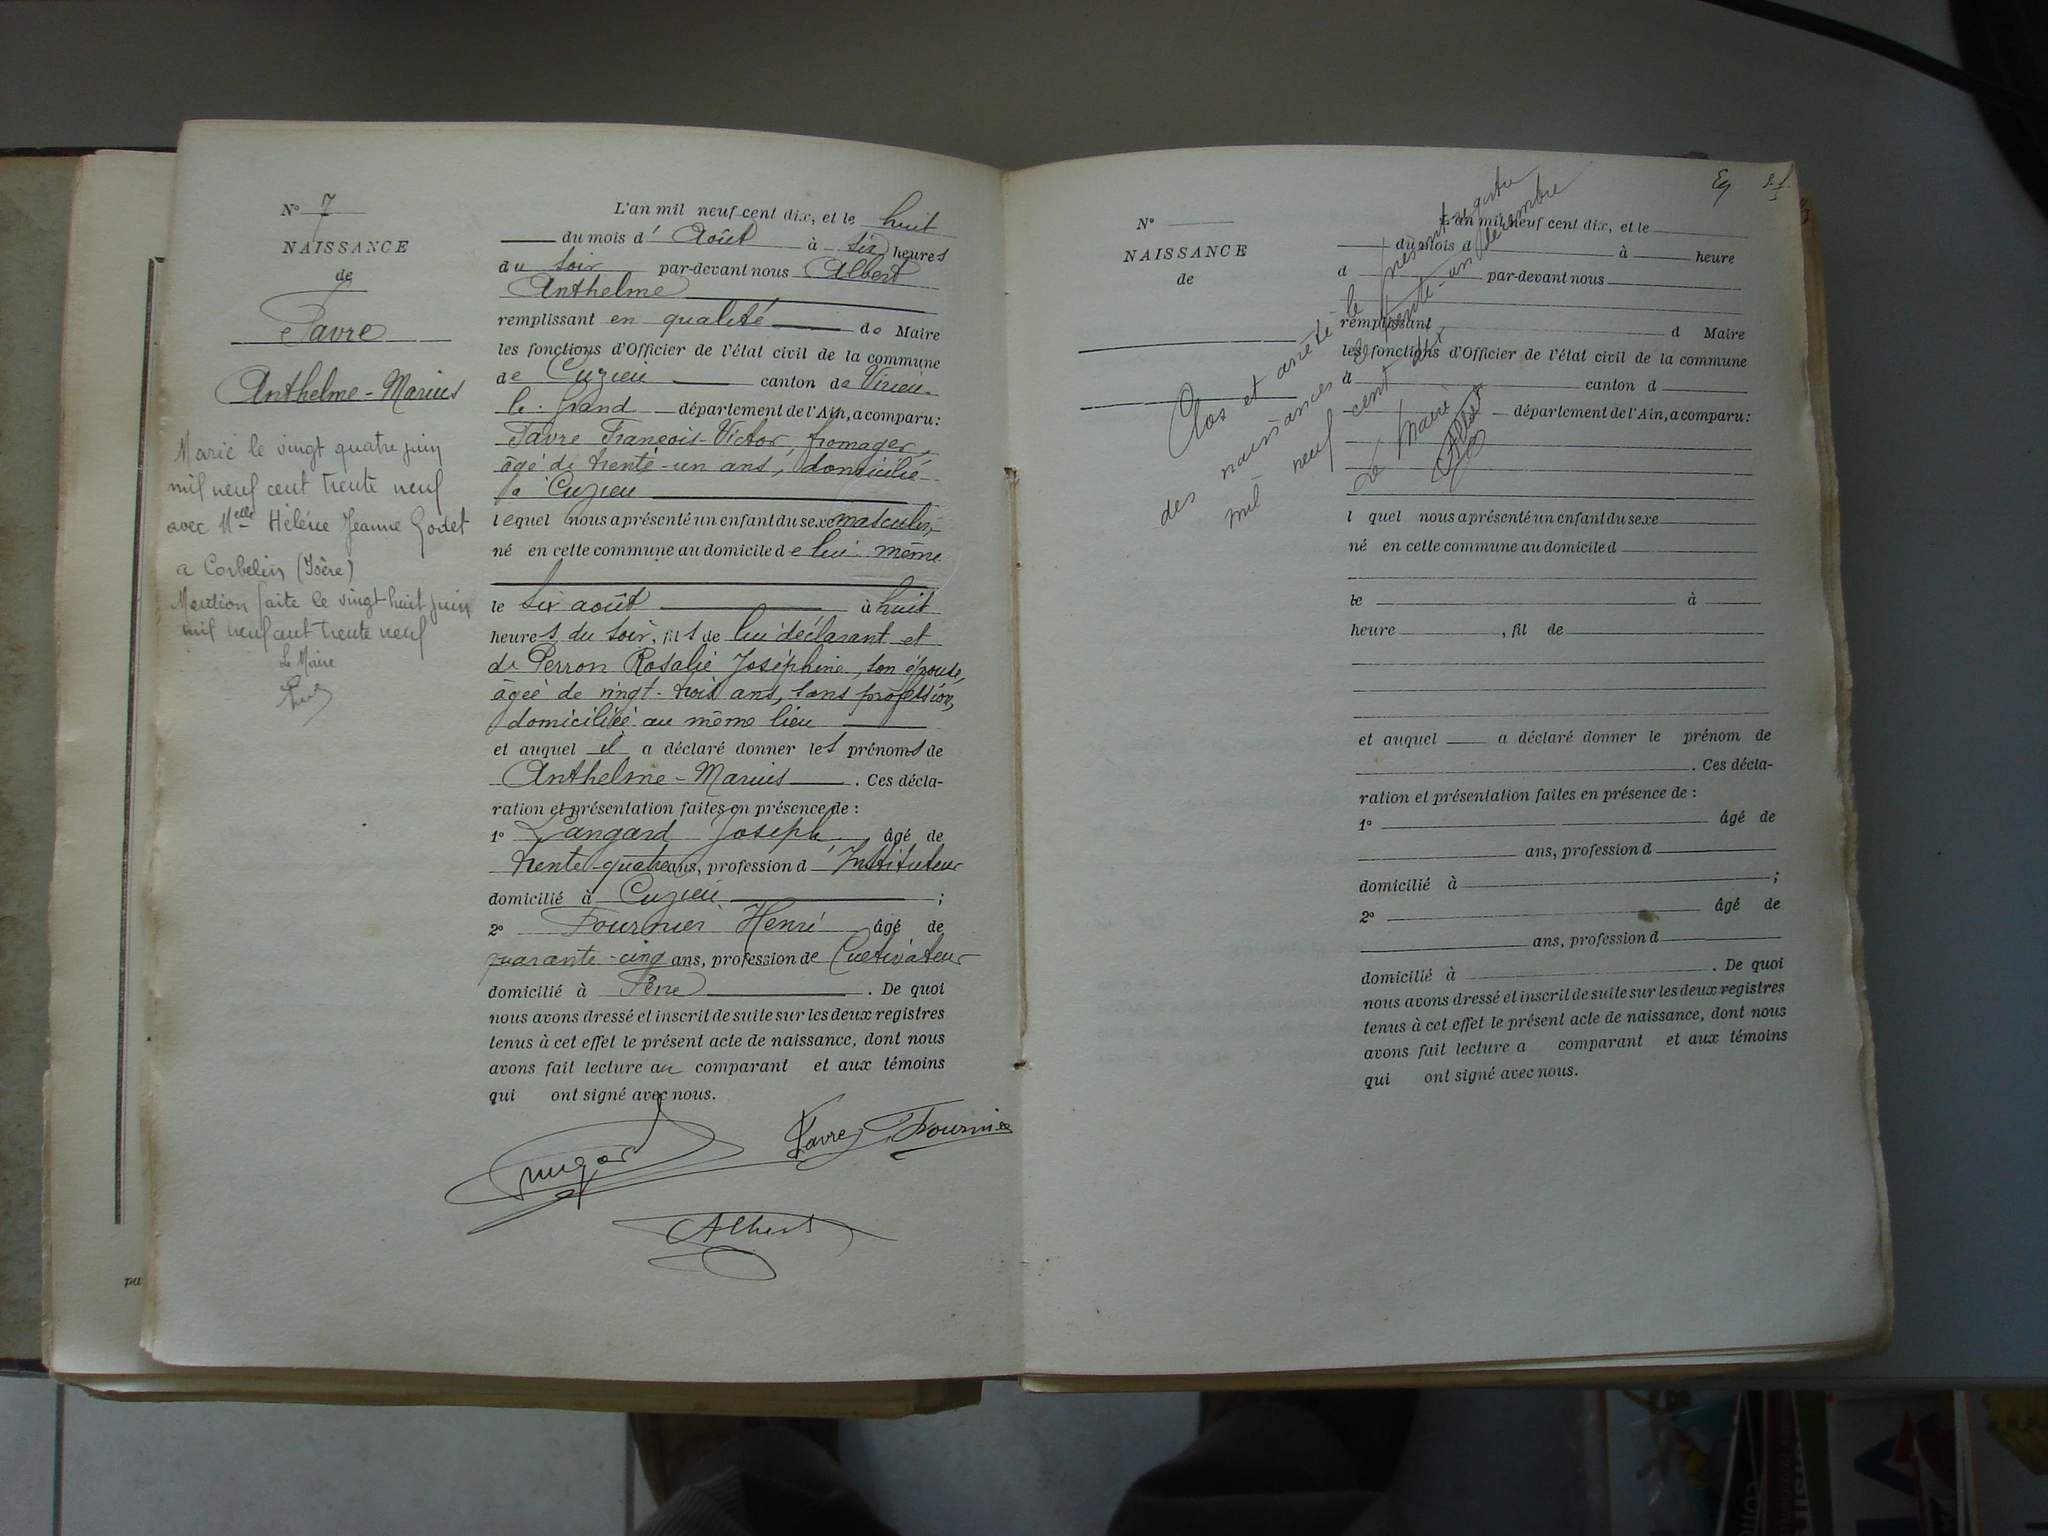 N° 7
NAISSANCE
de
Favre
Anthelme-Marius
Marié le vingt quatre juin
mil neuf cent trente neuf
avec Melle Hélène Jeanne Godet
a Corbelin (Isère)
Mention faite le vingt huit juin
mil neuf cent trente neuf
Le Maire
L'an mil neuf cent dix, et le huit
du mois d' Août à six heures
du soir par-devant nous Albert
Anthelme
remplissant en qualité de Maire
les fonctions d'Officier de l'état civil de la commune
de Cuzieu canton de Virieu-
le-Grand département de l'Ain, a comparu:
Favre François-Victor, fromager,
âgé de trente-un ans, domicilié
à Cuzieu
lequel nous a présenté un enfant du sexe masculin,
né en cette commune au domicile de lui même
le six août à huit
heures du soir, fils de lui déclarant et
de Perron Rosalie Joséphine, son épouse,
âgée de vingt-trois ans, sans profession,
domiciliée au même lieu
et auquel il a déclaré donner les prénoms de
Anthelme-Marius. Ces décla-
ration et présentation faites en présence de :
1° Joseph âgé de
trente-quatre ans, profession d'Instituteur
domicilié à Cuzieu ;
2° Fournier Henri âgé de
quarante-cinq ans, profession de Cultivateur
domicilié à . De quoi
nous avons dressé et inscrit de suite sur les deux registres
tenus à cet effet le présent acte de naissance, dont nous
avons fait lecture au comparant et aux témoins
qui ont signé avec nous.
Favre Fournier
Albert
pa
N°
NAISSANCE
de
L'an mil neuf cent dix, et le
du mois d à heure
d par-devant nous
remplissant d Maire
les fonctions d'Officier de l'état civil de la commune
d canton d
département de l'Ain, a comparu:
l quel nous a présenté un enfant du sexe
né en cette commune au domicile d
le à
heure , fil de
et auquel a déclaré donner le prénom de
. Ces décla-
ration et présentation faites en présence de :
1° âgé de
ans, profession d
domicilié à ;
2° âgé de
ans, profession d
domicilié à . De quoi
nous avons dressé et inscrit de suite sur les deux registres
tenus à cet effet le présent acte de naissance, dont nous
avons fait lecture a comparant et aux témoins
qui ont signé avec nous.
Clos et arrêté le présent registre
des naissances le trente-un décembre
mil neuf cent dix
Le Maire
Albert